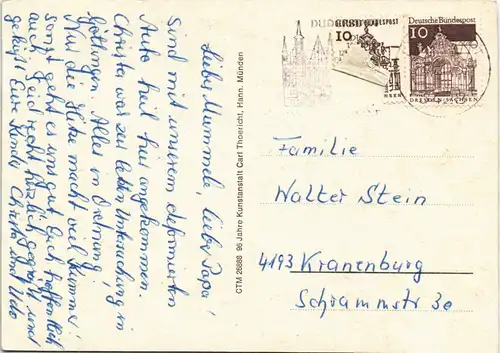 Liebe Mummela, lieber Papa!
Sind mit unserem deformierten
Auto heil hier angekommen.
Christa war zur letzten Untersuchung in
Göttingen. Alles in Ordnung,
Nur die Hitze macht viel Kummer
sonst geht es uns gut. Euch hoffentlich
auch. Seid recht herzlich gegrüßt und
geküßt Eure Kinder Christa und Udo
CTM 28888 96 Jahre Kunstanstalt Carl Thoericht, Hann. Münden
Deutsche Bundespost
10
DRESDEN/SACHSEN
10
Familie
Walter Stein
4193 Kranenburg
Schrammstr 30